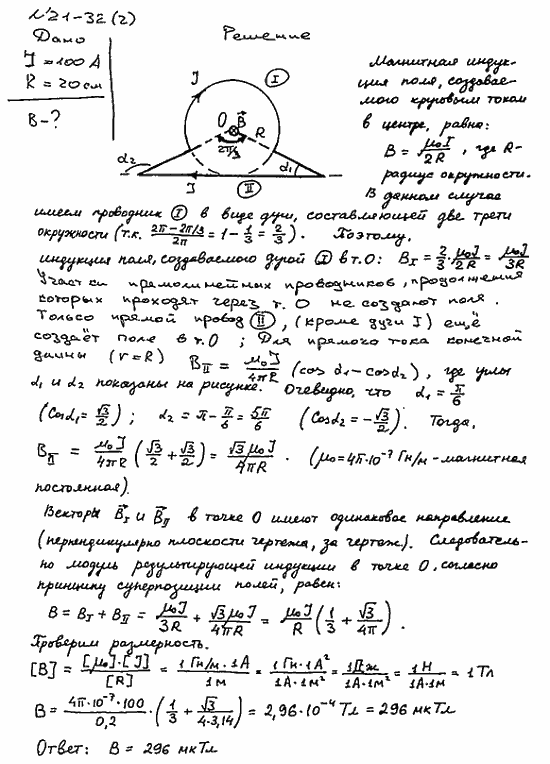 №21-32(2)
Дано
J = 100 A
R = 20 см
B - ?
Решение
J I
O B⃗ R
2π/3
α₂ α₁
J II
Магнитная индук-
ция поля, создавае-
мого круговым током
в центре, равна:
B = μ₀J/2R, где R-
радиус окружности.
В данном случае
имеем проводник I в виде дуги, составляющей две трети
окружности (т.к. (2π-2π/3)/2π = 1 - 1/3 = 2/3). Поэтому,
индукция поля, создаваемого дугой I в т.O: B_I = 2/3 · μ₀J/2R = μ₀J/3R
Участки прямолинейных проводников, продолжения
которых проходят через т. O не создают поля.
Только прямой провод II, (кроме дуги I) ещё
создаёт поле в т.O; Для прямого тока конечной
длины (r=R) B_II = μ₀J/4πR (cos α₁ - cos α₂), где углы
α₁ и α₂ показаны на рисунке. Очевидно, что α₁ = π/6
(cos α₁ = √3/2); α₂ = π - π/6 = 5π/6 (cos α₂ = -√3/2). Тогда,
B_II = μ₀J/4πR (√3/2 + √3/2) = √3 μ₀J/4πR. (μ₀=4π·10⁻⁷ Гн/м - магнитная
постоянная).
Векторы B⃗_I и B⃗_II в точке O имеют одинаковое направление
(перпендикулярно плоскости чертежа, за чертеж). Следователь-
но модуль результирующей индукции в точке O, согласно
принципу суперпозиции полей, равен:
B = B_I + B_II = μ₀J/3R + √3 μ₀J/4πR = μ₀J/R (1/3 + √3/4π).
Проверим размерность.
[B] = [μ₀]·[J]/[R] = 1 Гн/м · 1A/1м = 1 Гн·1A²/1A·1м² = 1Дж/1A·1м² = 1Н/1A·1м = 1 Тл
B = 4π·10⁻⁷·100/0,2 · (1/3 + √3/4·3,14) = 2,96·10⁻⁴ Тл = 296 мкТл
Ответ: B = 296 мкТл